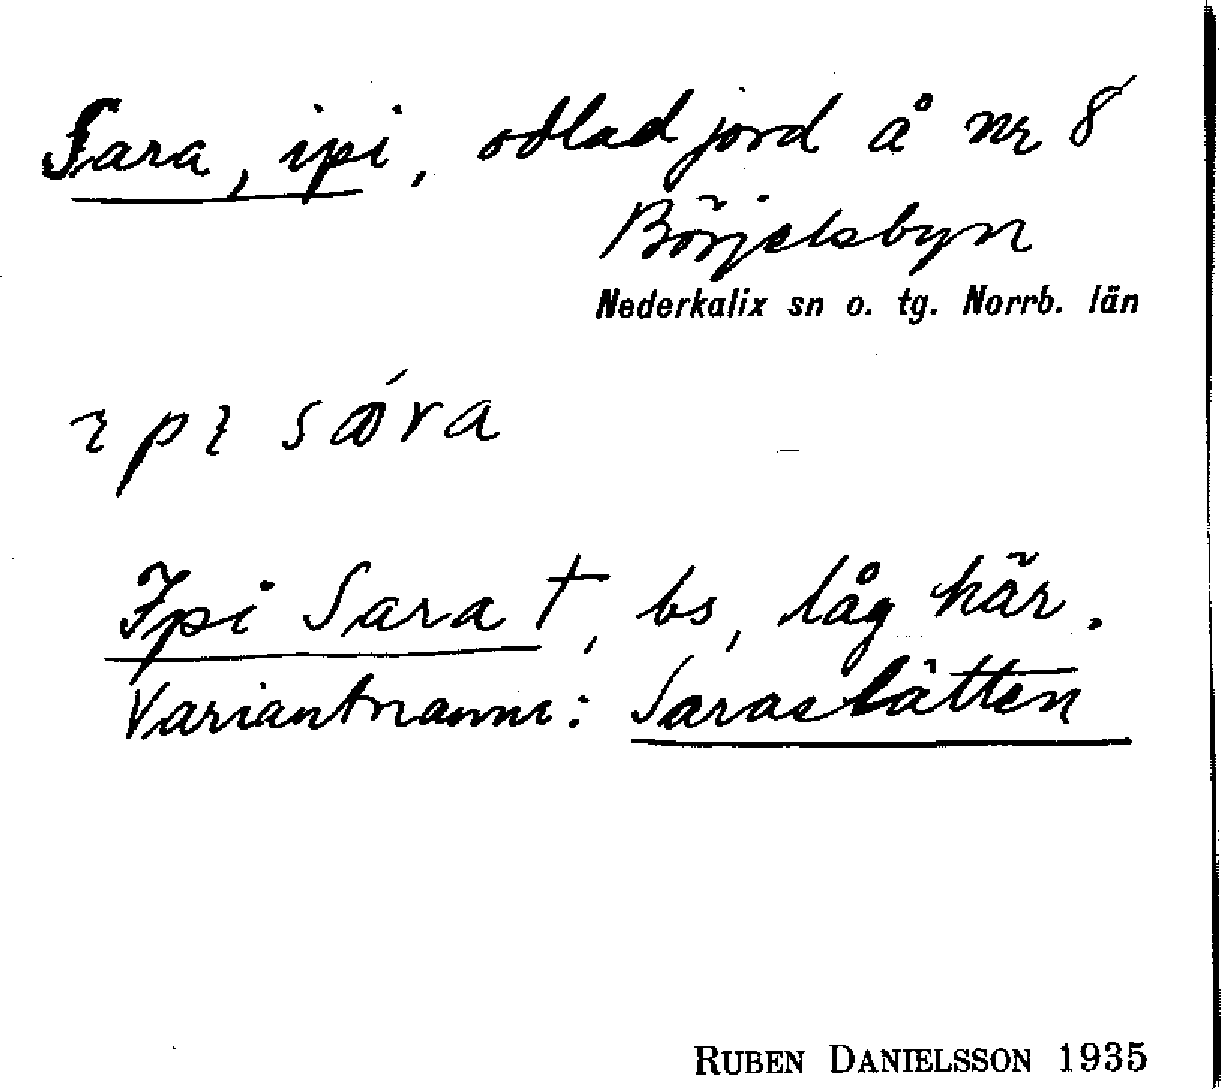 Sara, ipi, odlad jord å nr 8
Börjelsbyn
Nederkalix sn o. tg. Norrb. län
ipi sɑ́ra
Ipi Sara †, bs, låg här.
Variantnamn: Saraslätten
RUBEN DANIELSSON 1935